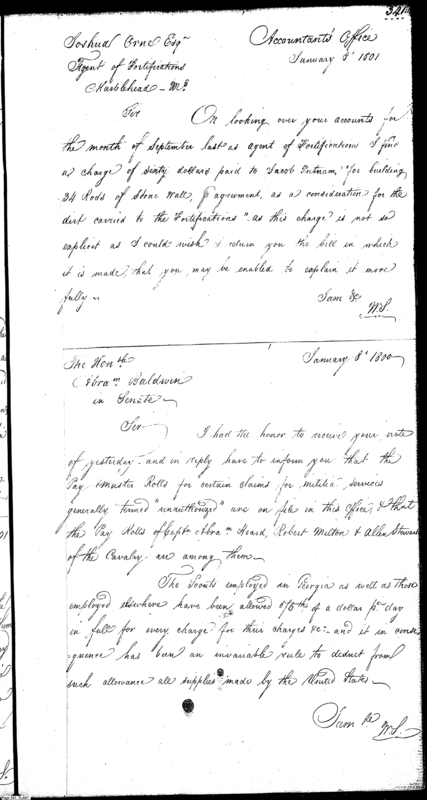 341
Joshua Orne Esqr
Agent of Fortifications
Marblehead - Ms
Accountants Office
January 8th 1801
Sir
On looking over your accounts for
the month of September last as agent of Fortifications I find
a charge of sixty dollars paid to Jacob Putnam, "for building
34 Rods of Stone Wall, p agreement, as a consideration for the
dirt carried to the Fortifications" - as this charge is not so
explicit as I could wish I return you the bill in which
it is made, that you may be enabled to explain it more
fully -
I am &c
W.S.
The Honble
Abram Baldwin
in Senate
January 8th 1800
Sir
I had the honor to receive your note
of yesterday - and in reply have to inform you that the
Pay & Muster Rolls for certain claims for militia services
generally termed "unauthorized" are on file in this Office, & that
the Pay Rolls of Captn Abram Heard, Robert Melton & Allen Stewart
of the Cavalry are among them -
The Scouts employed in Georgia as well as those
employed elsewhere have been allowed 5/6th of a dollar pr day
in full for every charge for their &c - and it in conse
quence has been an invariable rule to deduct from
such allowance all supplies made by the United States -
I am &c
W.S.